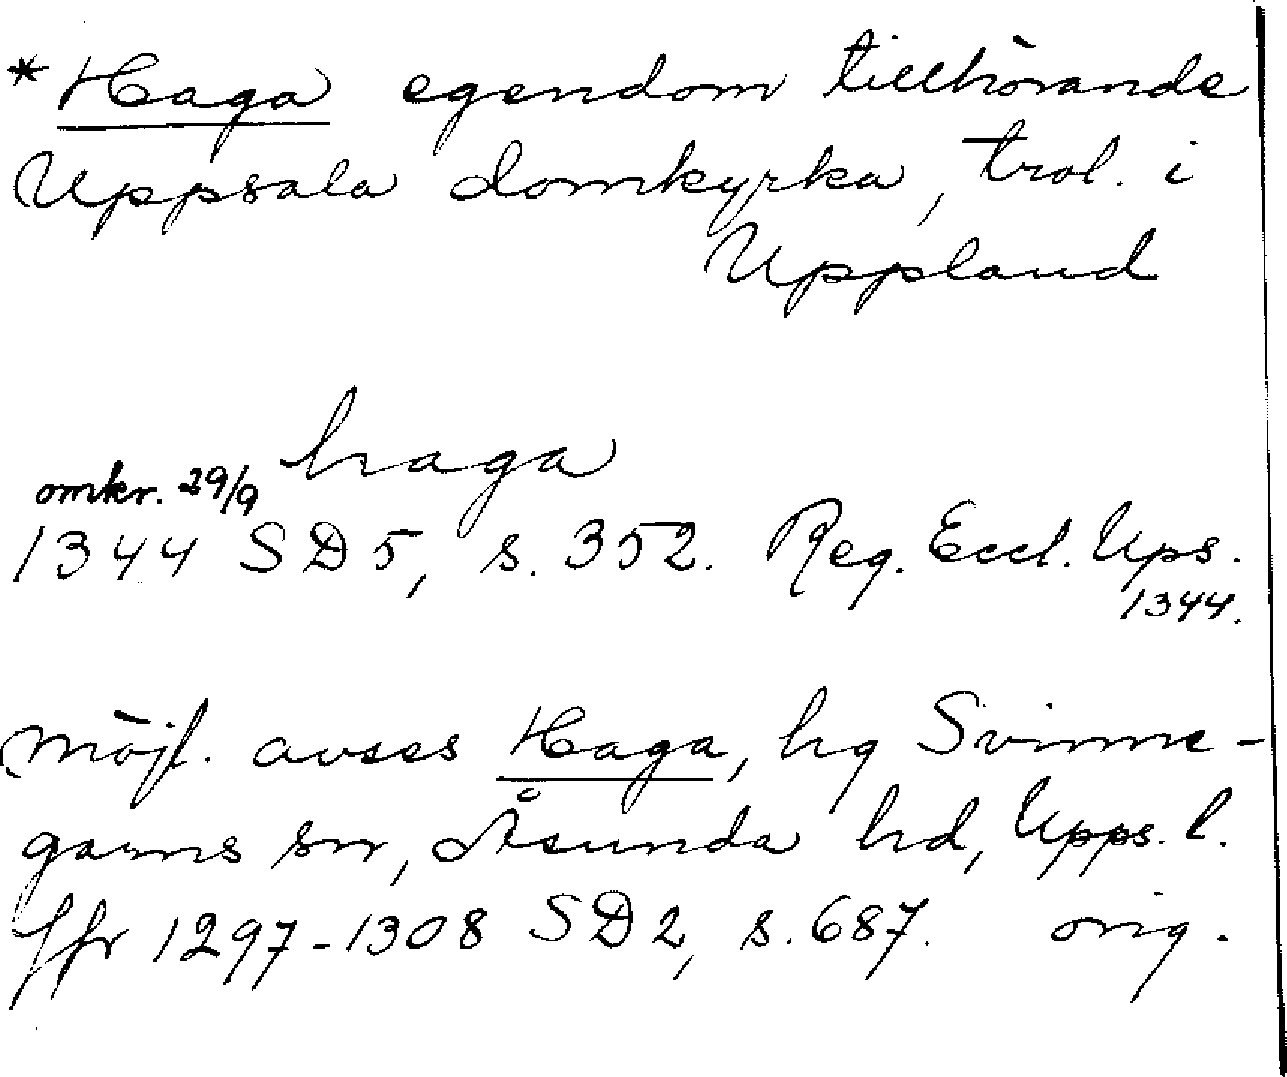 * Haga egendom tillhörande
Uppsala domkyrka, trol. i
Uppland
haga
omkr. 29/9
1344 SD 5, s. 352. Reg. Eccl. Ups.
1344.
möjl. avses Haga, hg Svinne-
garns sn, Åsunda hd, Upps. l.
Jfr 1297-1308 SD 2, s. 687. orig.